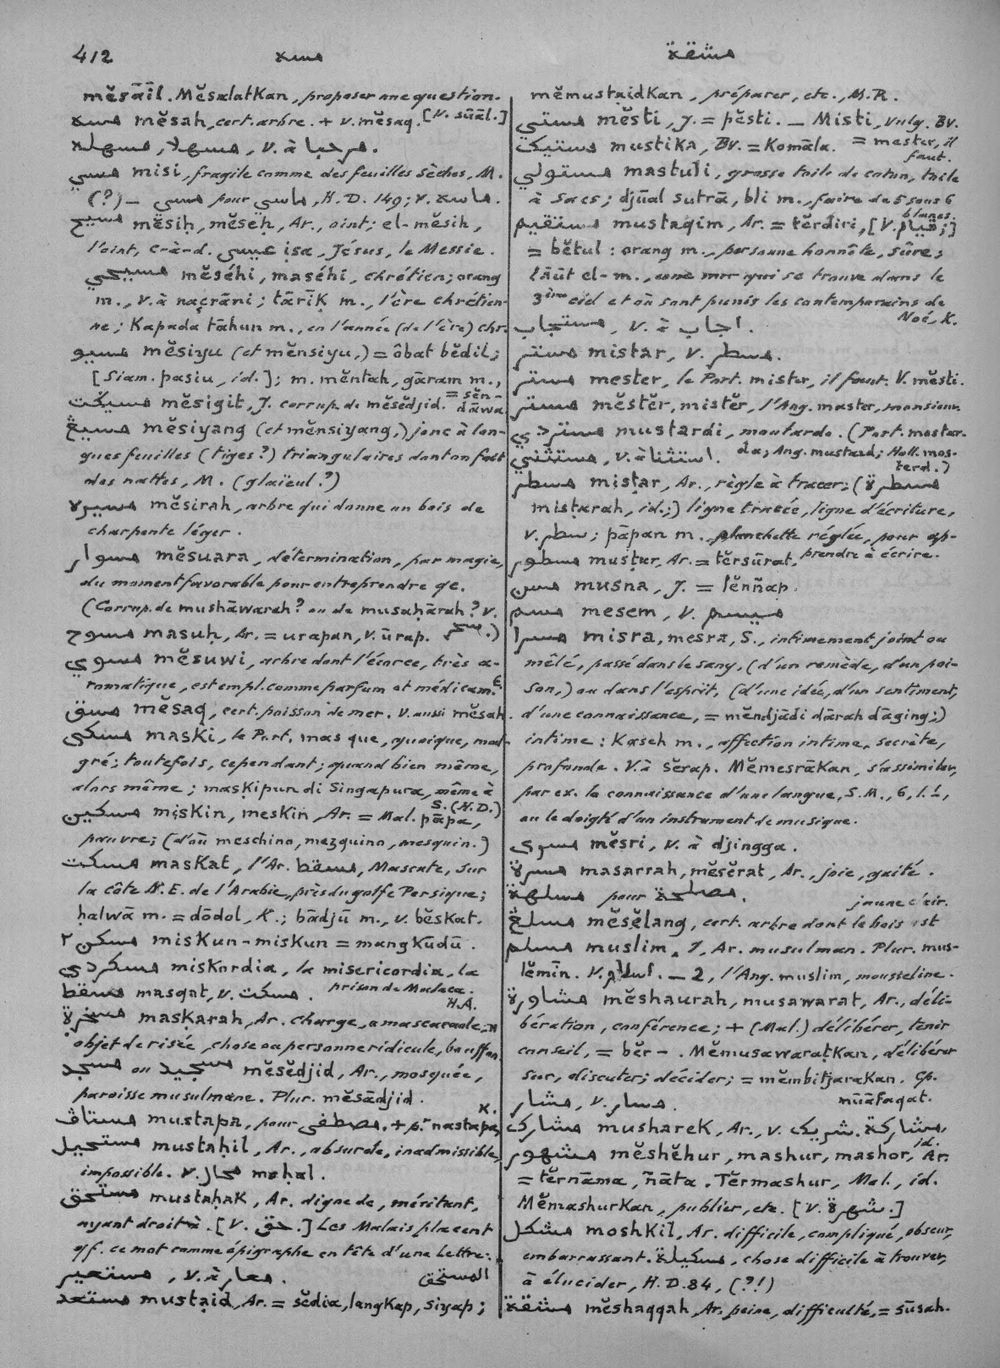 412
مسه
مشقة
mĕsāīl. Mĕsalatkan, proposer une question.
مسه mĕsah, cert. arbre. + v. mĕsaq. [V. sūāl.]
مرحبا V. à ,مسهلا, مسهله.
مسي misi, fragile comme des feuilles sèches, M.
(?) — مسي pour ماسي, H.D. 149; v. ماسه.
مسيح mĕsiḥ, mĕseḥ, Ar., oint; el-mĕsih,
l'oint, c-à-d. عيسى isa, Jésus, le Messie.
مسيحي mĕséhi, maséhi, chrétien; orang
m., v. à naçrāni; tārīk m., l'ère chrétien-
ne; Kapada tāhun m., en l'année (de l'ère) chr.
مسيو mĕsiyu (et mĕnsiyu,) = ôbat bĕdil;
[Siam. pasiu, id.]; m. mĕntah, gāram m.,
= sĕndāwa
مسيݢت mĕsigit, J. corrup. de mĕsĕdjid.
مسيڠ mĕsiyang (et mĕnsiyang,) jonc à lon-
gues feuilles (tiges?) triangulaires dont on fait
des nattes, M. (glaïeul?)
مسيره mĕsirah, arbre qui donne un bois de
charpente léger.
مسوار mĕsuara, détermination, par magie,
du moment favorable pour entreprendre qc.
(Corrup. de mushāwarah? ou de musaḥārah? V. سحر.)
مسوح masuh, Ar. = urapan, v. ūrap.
مسوي mĕsuwi, arbre dont l'écorce, très a-
romatique, est empl. comme parfum et médicamt.
مسق mĕsaq, cert. poisson de mer. V. aussi mĕsah.
مسكي maski, le Port. mas que, quoique, mal-
gré; toutefois, cependant; quand bien même,
alors même; maskipun di Singapura, même à
S. (H.D.)
مسكين miskin, meskin, Ar. = Mal. pāpa,
pauvre; (d'où meschino, mezquino, mesquin.)
مسكت maskat, l'Ar. مسقط, Mascate, sur
la côte N.E. de l'Arabie, près du golfe Persique;
ḥalwā m. = dōdol, K.; bādjū m., v. bĕskat.
مسكن ٢ miskun-miskun = mangkudū.
مسكردي miskordia, la misericordia, la
prison de Malaca. H.A.
مسقط masqat, v. مسكت.
مسخرة maskarah, Ar. charge, mascarade,
objet de risée, chose ou personne ridicule, bouffon, K.
مسجد ou مسجيد mĕsĕdjid, Ar., mosquée,
paroisse musulmane. Plur. mĕsādjid.
مستاڤ mustapa, pour مصطفى. + p.r nastapa, K.
مستحيل mustaḥil, Ar., absurde, inadmissible,
impossible. V. محال moḥal.
مستحق mustaḥak, Ar. digne de, méritant,
ayant droit à. [V. حق.] Les Malais placent
qf. ce mot comme épigraphe en tête d'une lettre:.
المستحق
مستعير, v. à معار.
مستعد mustaid, Ar. = sĕdia, langkap, siyap;
mĕmustaidkan, préparer, etc., M.R.
مستي mĕsti, J. = pĕsti. — Misti, vulg. Bv.
= mester, il faut.
مستيك mustika, Bv. = Komāla.
مستولي mastuli, grosse toile de coton, toile
à sacs; djūal sutrā, bli m., faire des sous 6
blancs
مستقيم mustaqim, Ar. = tĕrdiri, [V. قيام;]
= bĕtul: orang m., personne honnête, sûre;
lāūt el-m., une mer qui se trouve dans le
3ème ciel et où sont punis les contemporains de
Noé, K.
مستجاب, v. à اجاب.
مستر mistar, v. مسطر.
مستر mester, le Port. mister, il faut. V. mĕsti.
مستر mĕstĕr, mistĕr, l'Ang. master, monsieur.
مستردي mustardi, moutarde. (Port. mostar-
da; Ang. mustard; Holl. mos-
terd.)
مستثني, v. à استثناء.
مسطر misṭar, Ar., règle à tracer; (مسطرة
mistarah, id.;) ligne tracée, ligne d'écriture,
v. سطر; pāpan m., planchette réglée, pour ap-
prendre à écrire.
مسطور musṭur, Ar. = tĕrsūrat.
مسن musna, J. = lĕnñap.
مسم mesem, v. ميسم
مسرا misra, mesra, S., intimement joint ou
mêlé, passé dans le sang, (d'un remède, d'un poi-
son,) ou dans l'esprit, (d'une idée, d'un sentiment,
d'une connaissance, = mĕndjādi dārah dāging;)
intime: Kaseh m., affection intime, secrète,
profonde. V. à sĕrap. Mĕmesrākan, s'assimiler,
par ex. la connaissance d'une langue, S.M., 6, l. 2,
ou le doigté d'un instrument de musique.
مسري mĕsri, v. à djingga.
مسرة masarrah, mĕsĕrat, Ar., joie, gaîté.
مسلهة pour مصلحة.
jaune clair.
مسلڠ mĕsĕlang, cert. arbre dont le bois est
مسلم muslim, 1, Ar. musulman. Plur. mus-
lĕmīn. V. اسلام. — 2, l'Ang. muslim, mousseline.
مشاورة mĕshaurah, musawarat, Ar., déli-
bération, conférence; + (Mal.) délibérer, tenir
conseil, = bĕr- . Mĕmusawaratkan, délibérer
sur, discuter; décider; = mĕmbitjarakan. Cp.
mūāfaqat.
مشار, v. مسار.
مشارك musharek, Ar., v. شريك. مشاركة, id.
مشهور mĕshĕhur, mashur, mashor, Ar.
= tĕrnāma, ñāta. Tĕrmashur, Mal., id.
Mĕmashurkan, publier, etc. [V. شهرة.]
مشكل moshkil, Ar. difficile, compliqué, obscur,
embarrassant. مسكيلة, chose difficile à trouver,
à élucider, H.D. 84, (?!)
مشقة mĕshaqqah, Ar. peine, difficulté, = sūsah.